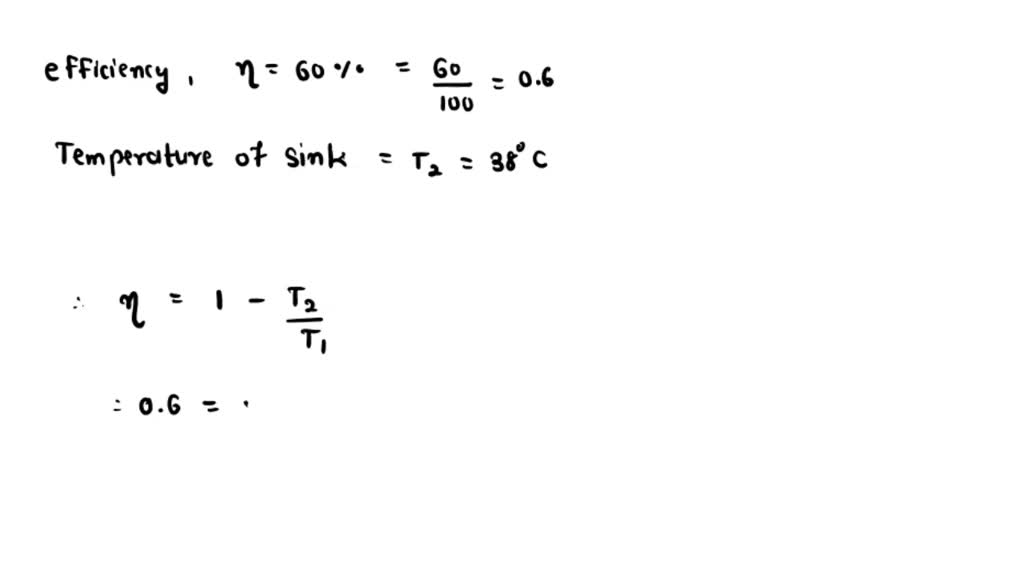 efficiency, η = 60 % = 60/100 = 0.6
Temperature of sink = T₂ = 38° C
∴ η = 1 - T₂/T₁
= 0.6 =